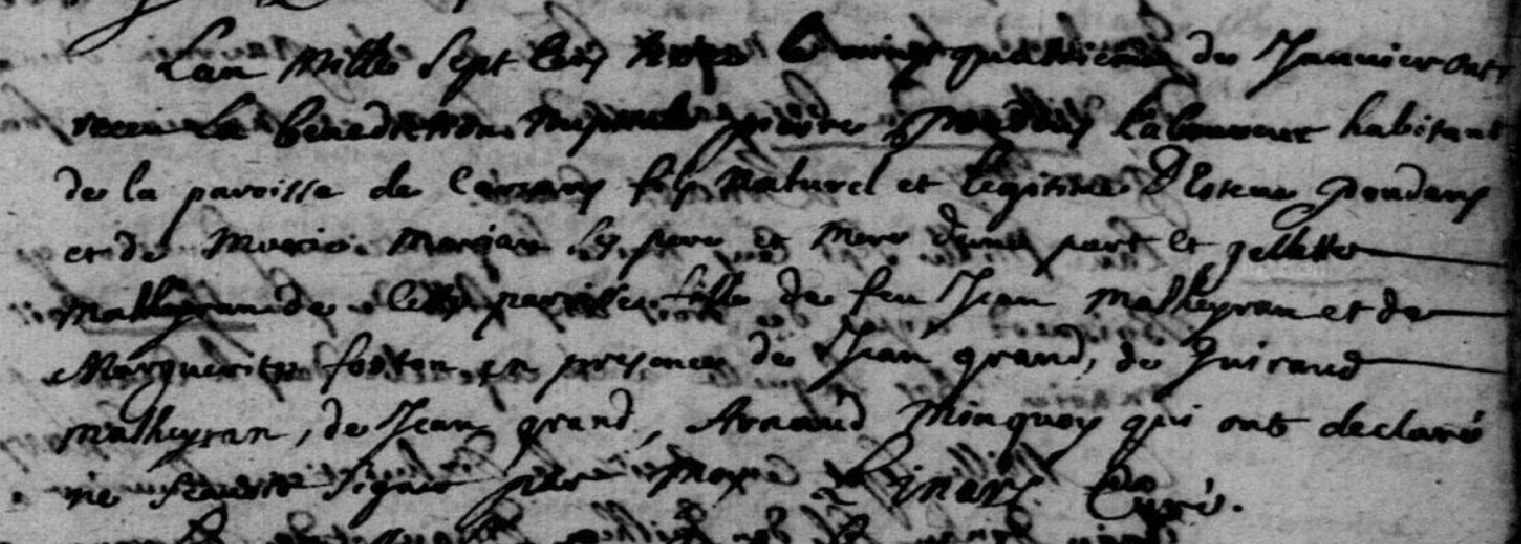 Lan Mille Sept Cens et vingt quatrieme de Janvier ont
receu La benediction nuptiale pierre Laboureur habitant
de la paroisse de fils Naturel et legitime d'Esteve Poudans
et de Marie Marian Ses pere et Mere d'une part et
Matheyran de Cette paroisse fille de feu Jean Matheyran et de
Marguerite forton en presence de Jean grand, de Guiraud
Matheyran, de Jean grand, Arnaud Minquoy qui ont declaré
ne scavoir signer par Moy Curé.